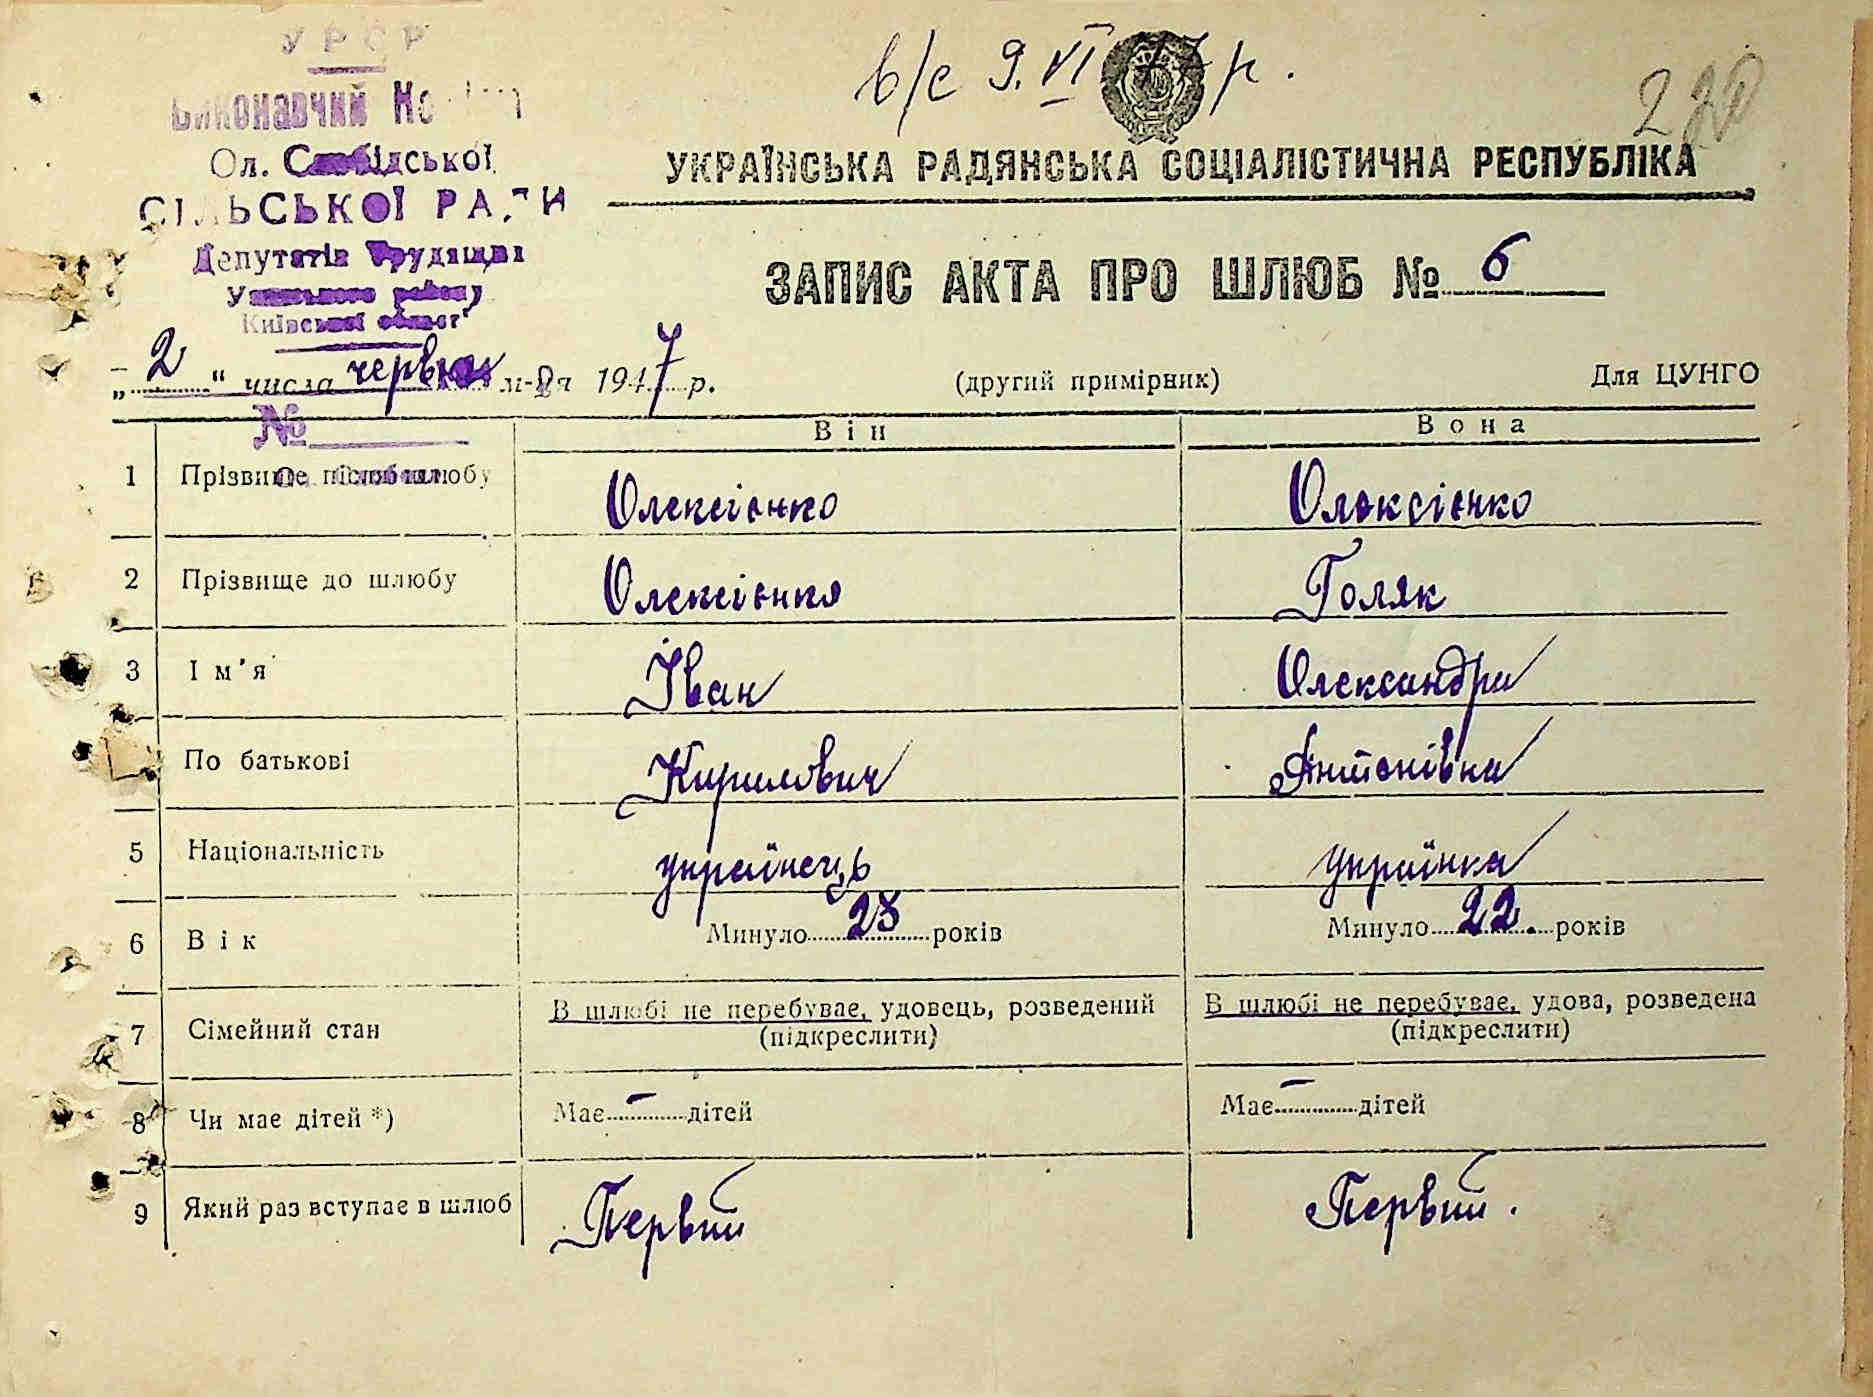 УРСР
Виконавчий
Ол. Слобідської
СІЛЬСЬКОЇ РАДИ
Депутатів Трудящих
району
Київської області
в/с 9. VI 47 р.
220
УКРАЇНСЬКА РАДЯНСЬКА СОЦІАЛІСТИЧНА РЕСПУБЛІКА
ЗАПИС АКТА ПРО ШЛЮБ № 6
„2“ числа червня м-ця 1947 р. (другий примірник) Для ЦУНГО
№
Він Вона
1 Прізвище після шлюбу Олексієнко Олексієнко
2 Прізвище до шлюбу Олексієнко Голяк
3 Ім'я Іван Олександра
По батькові Кирилович Антонівна
5 Національність українець українка
6 Вік Минуло 23 років Минуло 22 років
7 Сімейний стан В шлюбі не перебуває, удовець, розведений (підкреслити) В шлюбі не перебуває, удова, розведена (підкреслити)
8 Чи має дітей *) Має – дітей Має – дітей
9 Який раз вступає в шлюб Первий Первий.